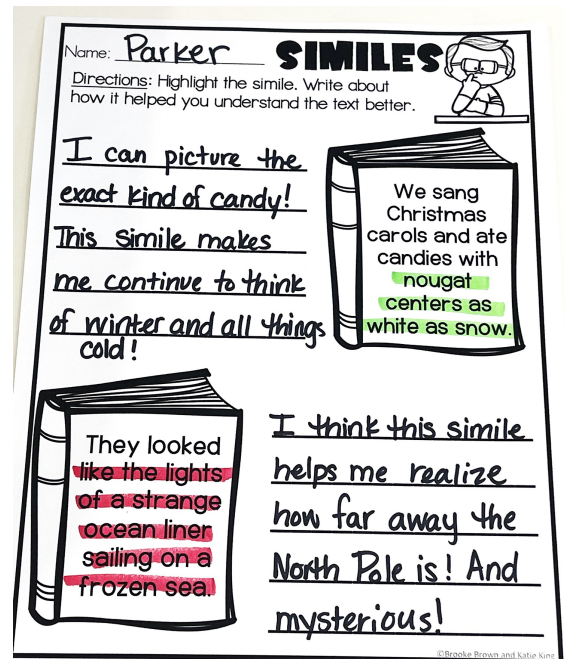 Name: Parker
SIMILES
Directions: Highlight the simile. Write about
how it helped you understand the text better.
I can picture the
exact kind of candy!
This simile makes
me continue to think
of winter and all things
cold!
We sang
Christmas
carols and ate
candies with
nougat
centers as
white as snow.
They looked
like the lights
of a strange
ocean liner
sailing on a
frozen sea.
I think this simile
helps me realize
how far away the
North Pole is! And
mysterious!
©Brooke Brown and Katie King